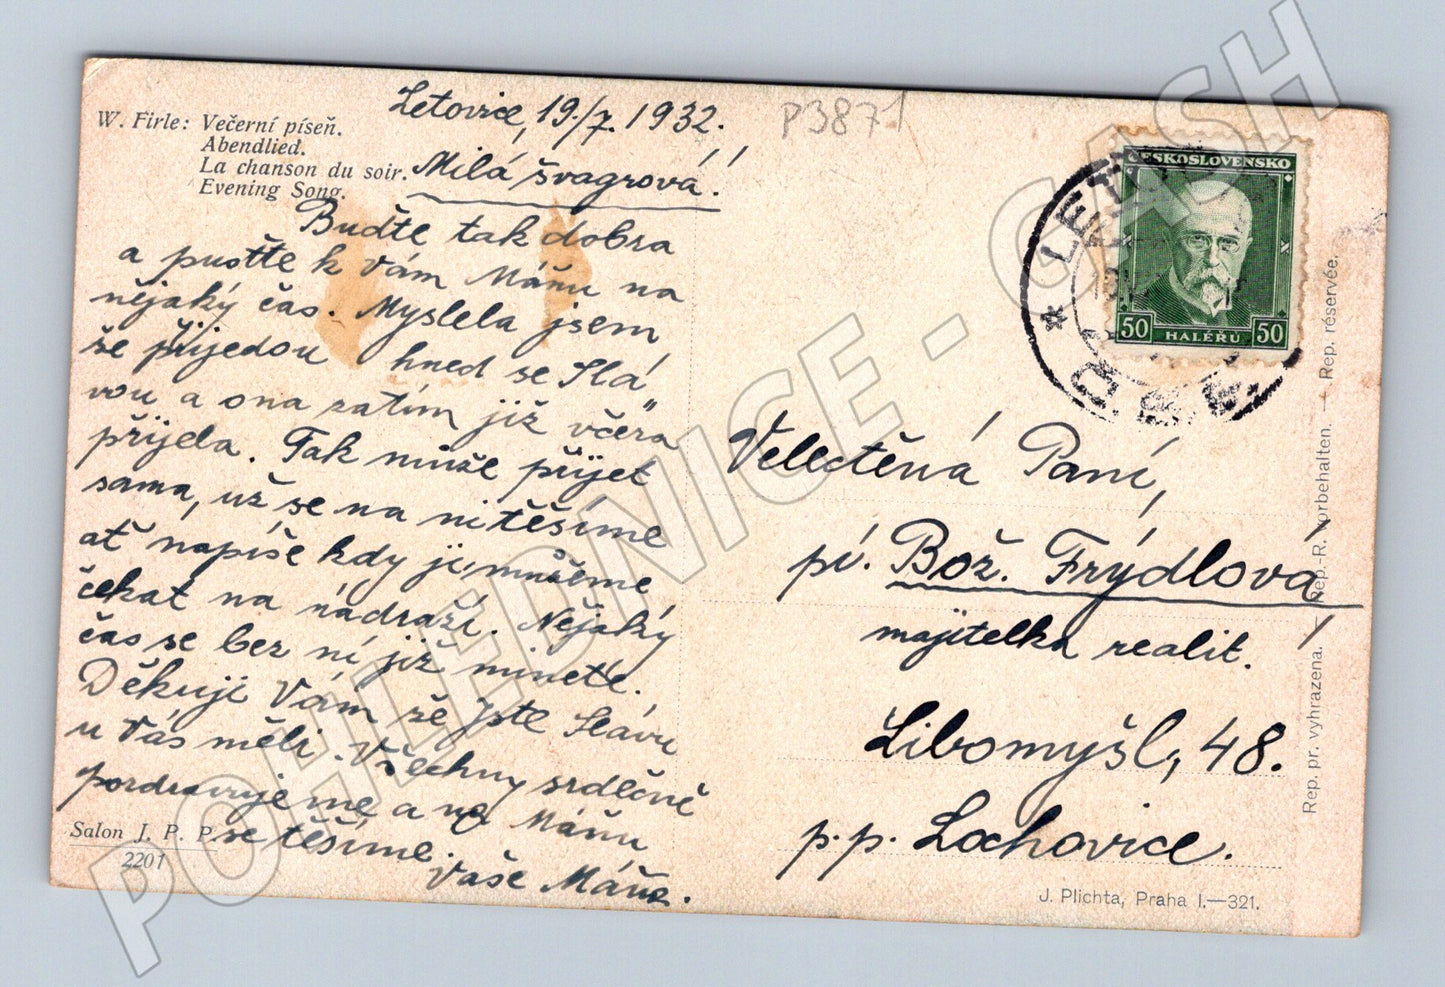 W. Firle: Večerní píseň.
Abendlied.
La chanson du soir.
Evening Song.
Letovice, 19./7. 1932.
P3871
Milá švagrová!
Buďte tak dobra
a pusťte k Vám Máňu na
nějaký čas. Myslela jsem
že přijedou hned se Slá
vou a ona zatím již včera
přijela. Tak může přijet
sama, už se na ni těšíme
ať napíše kdy ji můžeme
čekat na nádraží. Nějaký
čas se bez ní již minete.
Děkuji Vám že jste Slávu
u Vás měli. Všechny srdečně
pozdravujeme a na Máňu
se těšíme.
Vaše Máňa.
Salon J. P. P.
2201
ČESKOSLOVENSKO
50 HALÉŘŮ 50
Velectěná Paní,
pí. Bož. Frýdlová
majitelka realit.
Libomyšl, 48.
p.p. Lochovice.
J. Plichta, Praha I.—321.
Rep. pr. vyhrazena. — Rep.-R. vorbehalten. — Rep. réservée.
POHLEDNICE - CASH